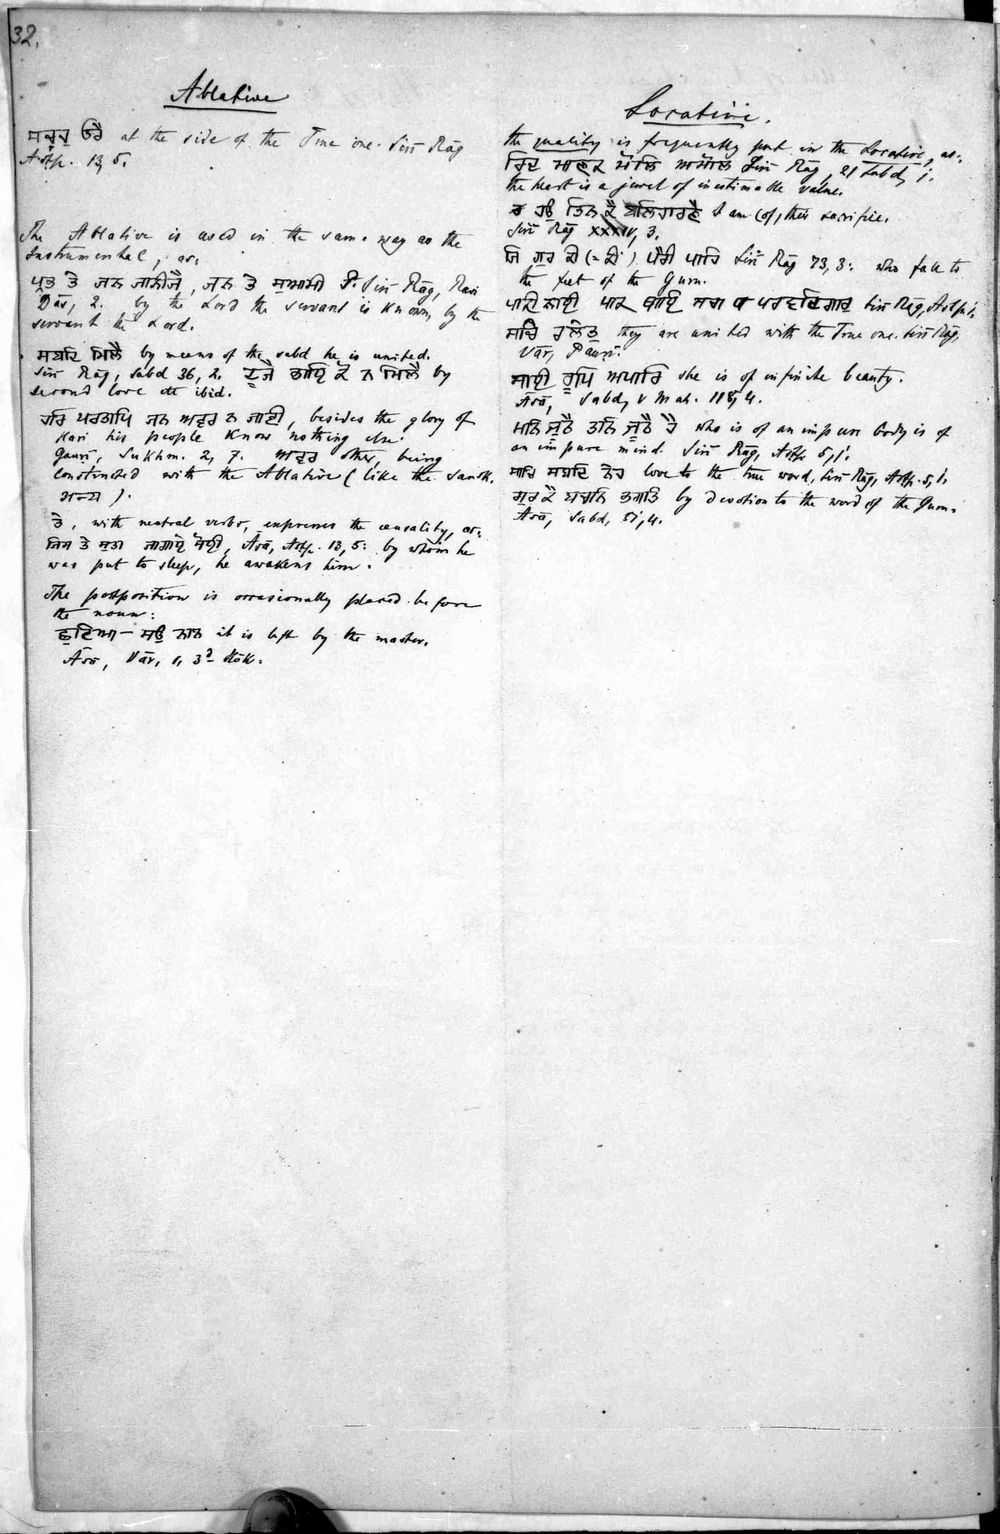 32.
Ablative
ਸਚਹੁ ਓਰੈ at the side of the True one. Sirī Rāg
Astp. 13, 5.
The Ablative is used in the same way as the
Instrumental, as:
ਪ੍ਰਭ ਤੇ ਜਨ ਜਾਨੀਜੈ, ਜਨ ਤੇ ਸੁਆਮੀ Sirī Rāg, Ravi
Dās, 2. by the Lord the servant is known, by the
servant the Lord.
ਸਬਦਿ ਮਿਲੈ by means of the sabd he is united.
Sirī Rāg, Sabd 36, 2. ਦੂਜੈ ਭਾਇ ਕੋ ਨ ਮਿਲੈ by
second love etc ibid.
ਹਰਿ ਪਰਤਾਪਿ ਜਨ ਅਵਰ ਨ ਜਾਣੀ, besides the glory of
Hari his people know nothing else.
Gauṛī, Sukhm. 2, 7. ਅਵਰ other, being
constructed with the Ablative (like the Sansk.
अन्य).
ਤੇ, with neutral verbs, expresses the causality, as:
ਜਿਸ ਤੇ ਸੁਤਾ ਜਾਗਾਏ ਸੋਈ, Āsā, Astp. 13, 5: by whom he
was put to sleep, he awakens him.
The postposition is occasionally placed before
the noun:
ਛੁਟਿਆ – ਸਉ ਨਾਲ it is left by the master.
Āsā, Vār, 1, 3d Slōk.
Locative.
the quality is frequently put in the Locative, as:
ਰਿਦ ਮਾਣਕ ਮੋਲਿ ਅਮੋਲ Sirī Rāg, 21 Sabd, 1.
the heart is a jewel of inestimable value.
ਹਉ ਤਿਨ ਕੈ ਬਲਿਹਾਰਣੈ I am (of) their sacrifice.
Sirī Rāg XXXIV, 3.
ਜਿ ਗੁਰ ਕੀ (= ਕੀ) ਪੈਰੀ ਪਾਹਿ Sirī Rāg 73, 3: who fall to
the feet of the Guru.
ਪਾਕੀ ਨਾਈ ਪਾਕ ਥਾਇ ਸਚਾ ਪਰਵਦਿਗਾਰ Sirī Rāg, Astp. 1,
ਸਚਿ ਰਲੇਤੁ they are united with the True one. Sirī Rāg,
Vār, Pauṛī.
ਸਾਈ ਰੂਪਿ ਅਪਾਰਿ she is of infinite beauty.
Āsā, Sabd, V Mah. 118, 4.
ਮਨਿ ਜੂਠੈ ਤਨਿ ਜੂਠੈ ਹੈ who is of an impure body is of
an impure mind. Sirī Rāg, Astp. 5, 1.
ਸਾਚਿ ਸਬਦਿ ਨੇਹ love to the true word, Sirī Rāg, Astp. 5, 1.
ਗੁਰ ਕੈ ਬਚਨਿ ਭਗਤਿ by devotion to the word of the Guru.
Āsā, Sabd, 51, 4.